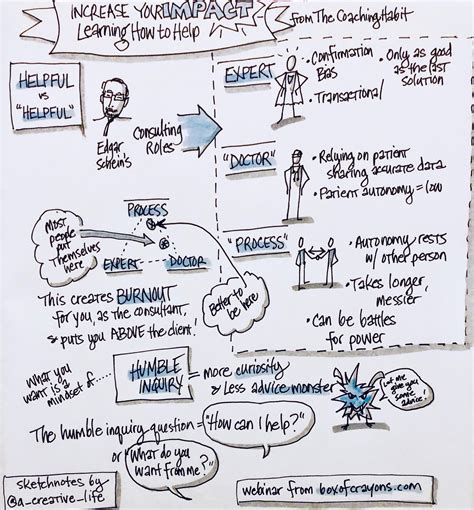 INCREASE YOUR IMPACT
Learning How to Help
from The Coaching Habit
HELPFUL
vs
"HELPFUL"
Edgar
Schein's
Consulting
Roles
EXPERT
• Confirmation
Bias
• Transactional
• Only as good
as the last
solution
"DOCTOR"
• Relying on patient
sharing accurate data
• Patient autonomy = low
"PROCESS"
• Autonomy rests
w/ other person
• Takes longer,
messier
• Can be battles
for power
Most
people
put
themselves
here
PROCESS
EXPERT
DOCTOR
Better to
be here
This creates BURNOUT
for you, as the consultant,
& puts you ABOVE the client!
What you
want is a
mindset of...
HUMBLE
INQUIRY
= more curiosity
& Less advice monster
Let me
give you
some
advice!
The humble inquiry question = "How can I help?"
or "What do you
want from me?"
sketchnotes by
@a_creative_life
webinar from boxofcrayons.com